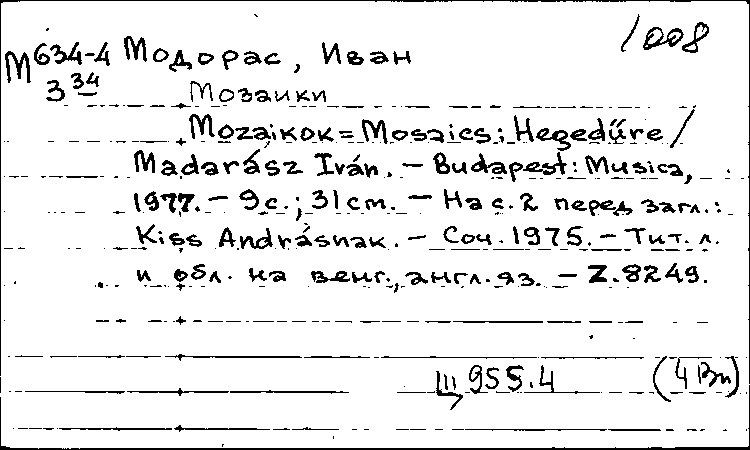 М634-4 Модорас, Иван 1008
3 34
Мозаики
Mozaikok = Mosaics: Hegedűre /
Madarász Iván. – Budapest: Musica,
1977. – 9 с.; 31 cm. – На с. 2 перед загл.:
Kiss Andrásnak. – Соч. 1975. – Тит. л.
и обл. на венг., англ. яз. – Z. 8249.
Ш 955.4 (4 Вп)